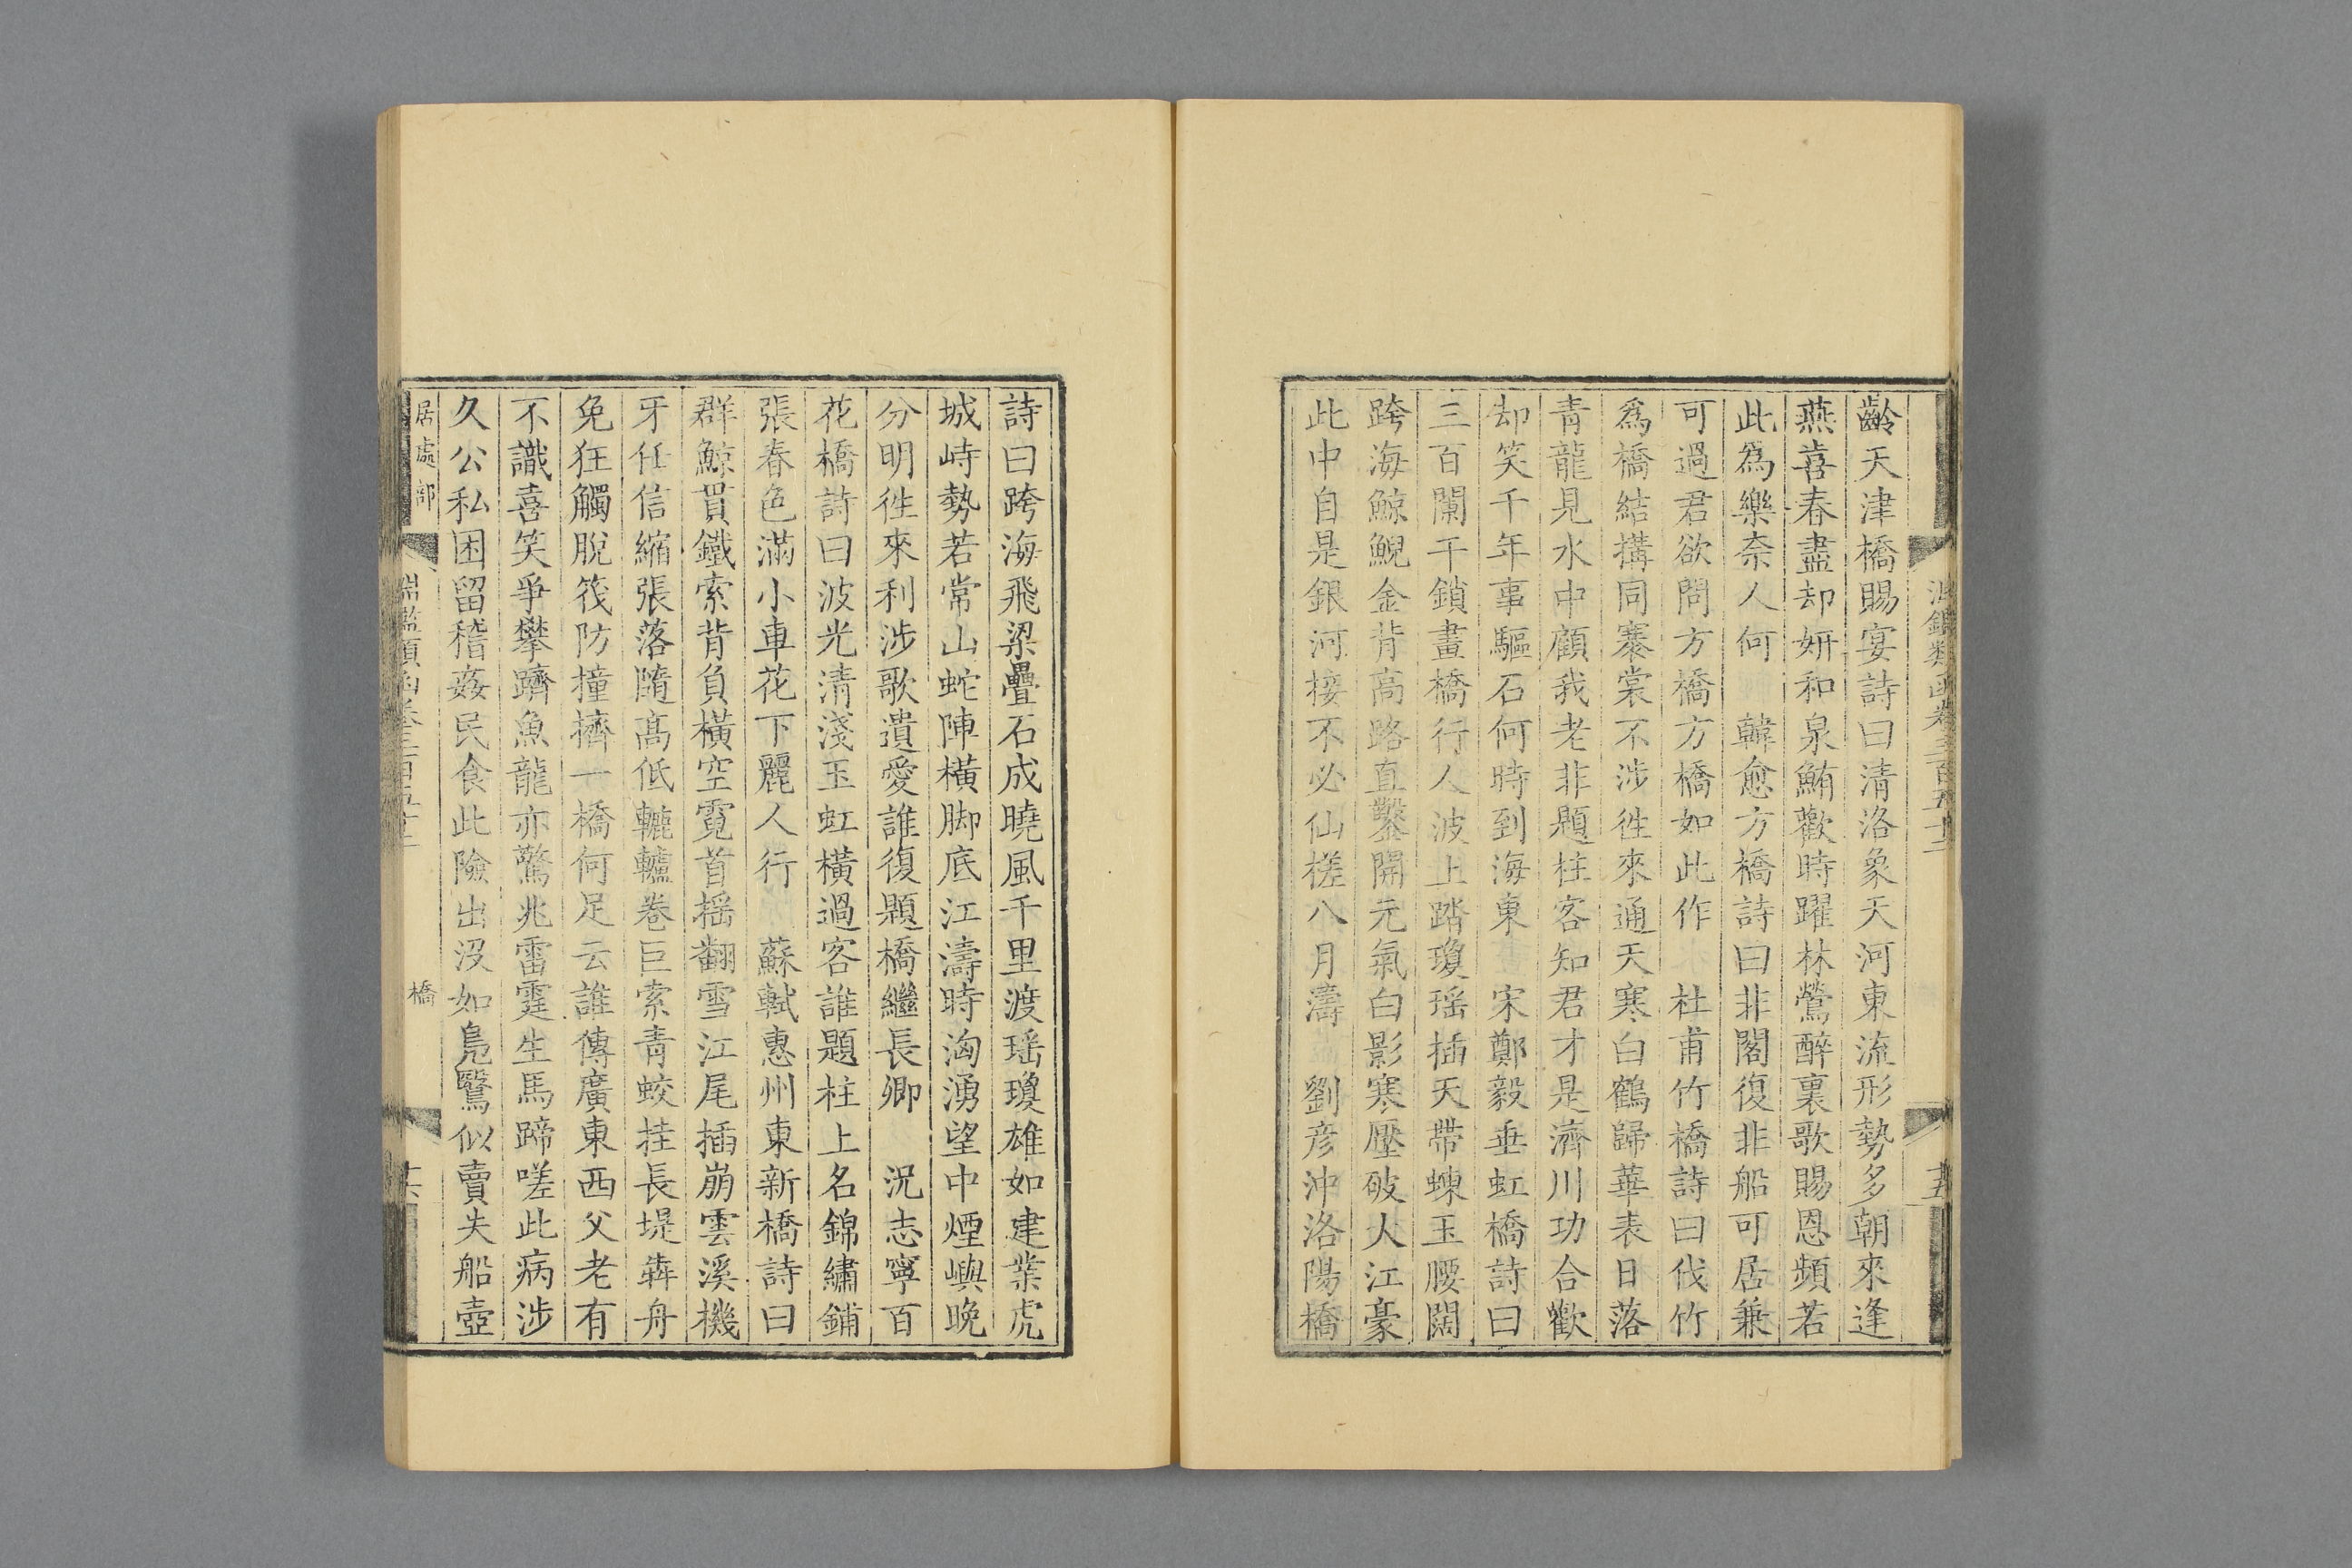 齡天津橋賜宴詩曰清洛象天河東流形勢多朝來逢
燕喜春盡却妍和泉鮪歡時躍林鶯醉裏歌賜恩頻若
此爲樂奈人何　韓愈方橋詩曰非閣復非船可居兼
可過君欲問方橋方橋如此作　杜甫竹橋詩曰伐竹
爲橋結搆同褰裳不涉徃來通天寒白鶴歸華表日落
青龍見水中顧我老非題柱客知君才是濟川功合歡
却笑千年事驅石何時到海東　宋鄭毅垂虹橋詩曰
三百闌干鎖畫橋行人波上踏瓊瑶插天帶蝀玉腰闊
跨海鯨鯢金背高路直鑿開元氣白影寒壓破大江豪
此中自是銀河接不必仙槎八月濤　劉彦沖洛陽橋
詩曰跨海飛梁疊石成曉風千里渡瑶瓊雄如建業虎
城峙勢若常山蛇陣橫脚底江濤時洶湧望中煙嶼晚
分明徃來利涉歌遺愛誰復題橋繼長卿　況志寧百
花橋詩曰波光清淺玉虹橫過客誰題柱上名錦繡鋪
張春色滿小車花下麗人行　蘇軾惠州東新橋詩曰
群鯨貫鐵索背負橫空霓首揺翻雪江尾插崩雲溪機
牙任信縮張落隨高低轆轤卷巨索青蛟挂長堤犇舟
免狂觸脫筏防撞擠一橋何足云誰傳廣東西父老有
不識喜笑爭攀躋魚龍亦驚兆雷霆生馬蹄嗟此病涉
久公私困留稽姦民食此險出沒如鳧鷖似賣失船壺
居處部
橋